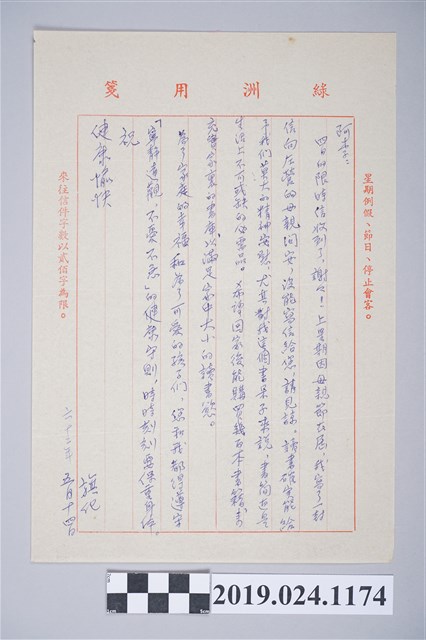 綠洲用箋
星期例假、節日、停止會客。
阿李:
四日的限時信收到了,謝々!上星期因母親節在居,我寫了一封
信向左營的母親問安,沒能寫信給您,請見諒。讀書確實能給
予我們莫大的精神安慰,尤其對我這個書呆子來說,書簡直是
生活上不可或缺的必需品。希望回家後能購買幾百本書籍來
充實家裏的書庫,以滿足家中大小的讀書慾。
為了家庭的幸福和為了可愛的孩子們,您和我都得遵守
「寧靜達觀 不憂不急」的健康守則。時時刻刻要保重身體。
祝
健康愉快
旗化
六十二年
五月十四日
來往信件字數以貳佰字為限。
2019.024.1174